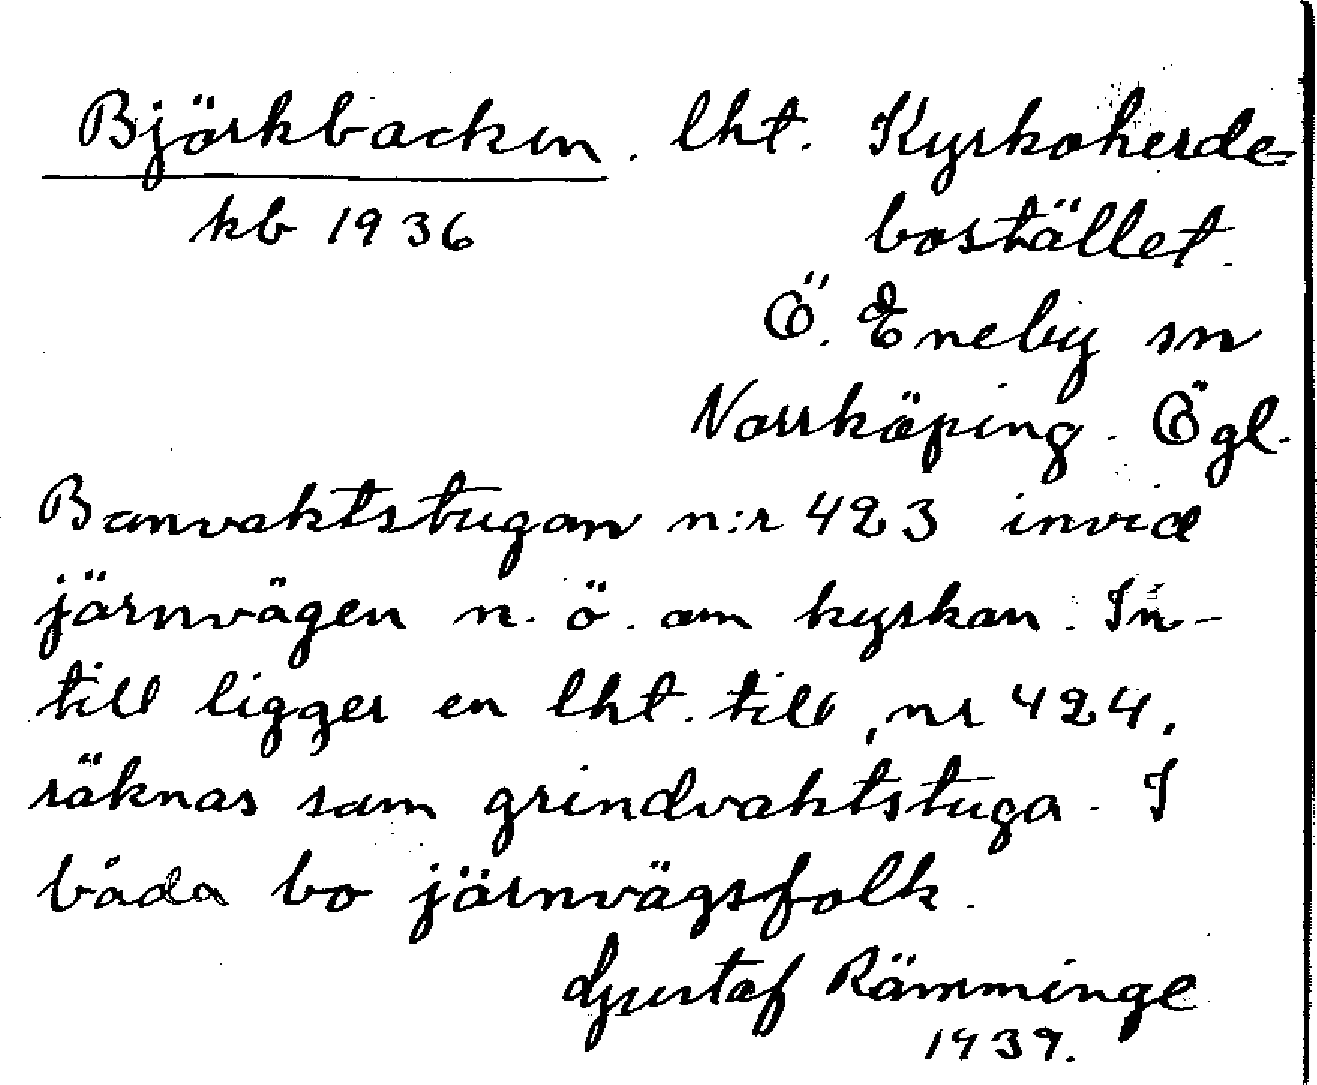 Björkbacken. lht. Kyrkoherde-
kb 1936 bostället.
Ö. Eneby sn
Norrköping. Ögl.
Banvaktstugan n:r 423 invid
järnvägen n. ö. om kyrkan. In-
till ligger en lht. till, nr 424,
räknas som grindvaktstuga. I
båda bo järnvägsfolk.
Gustaf Rämminge
1939.